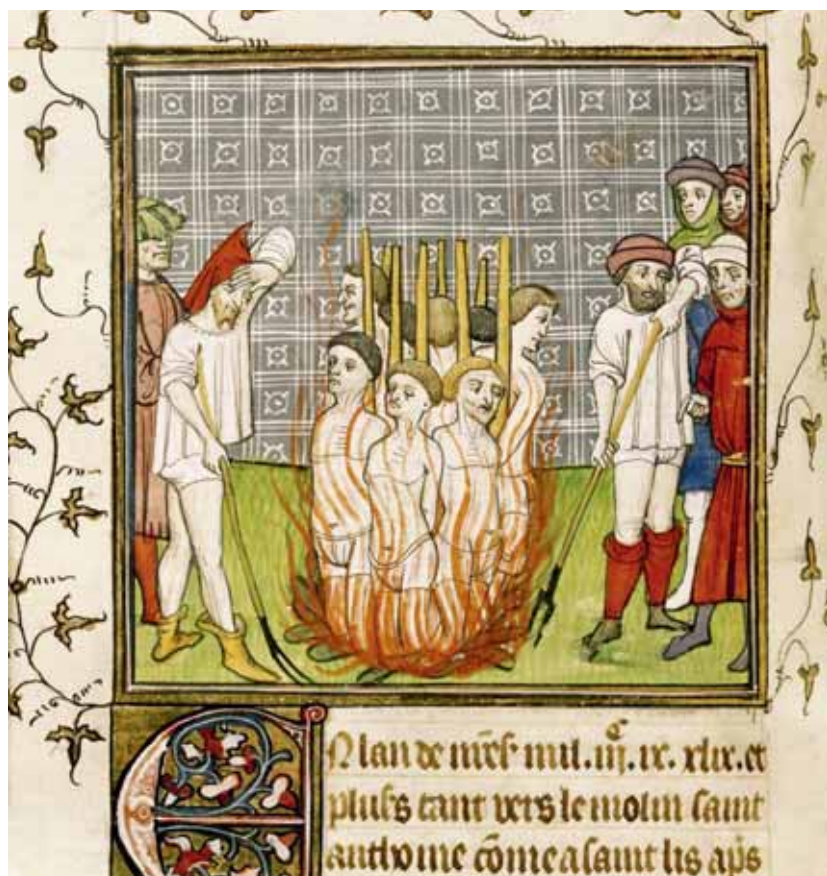 EN lan de nr̄e mil.iijᶜ.ix. xlix. et
plus̄s tant vers le molin saint
anthoine cōme a saint lis ap̄s